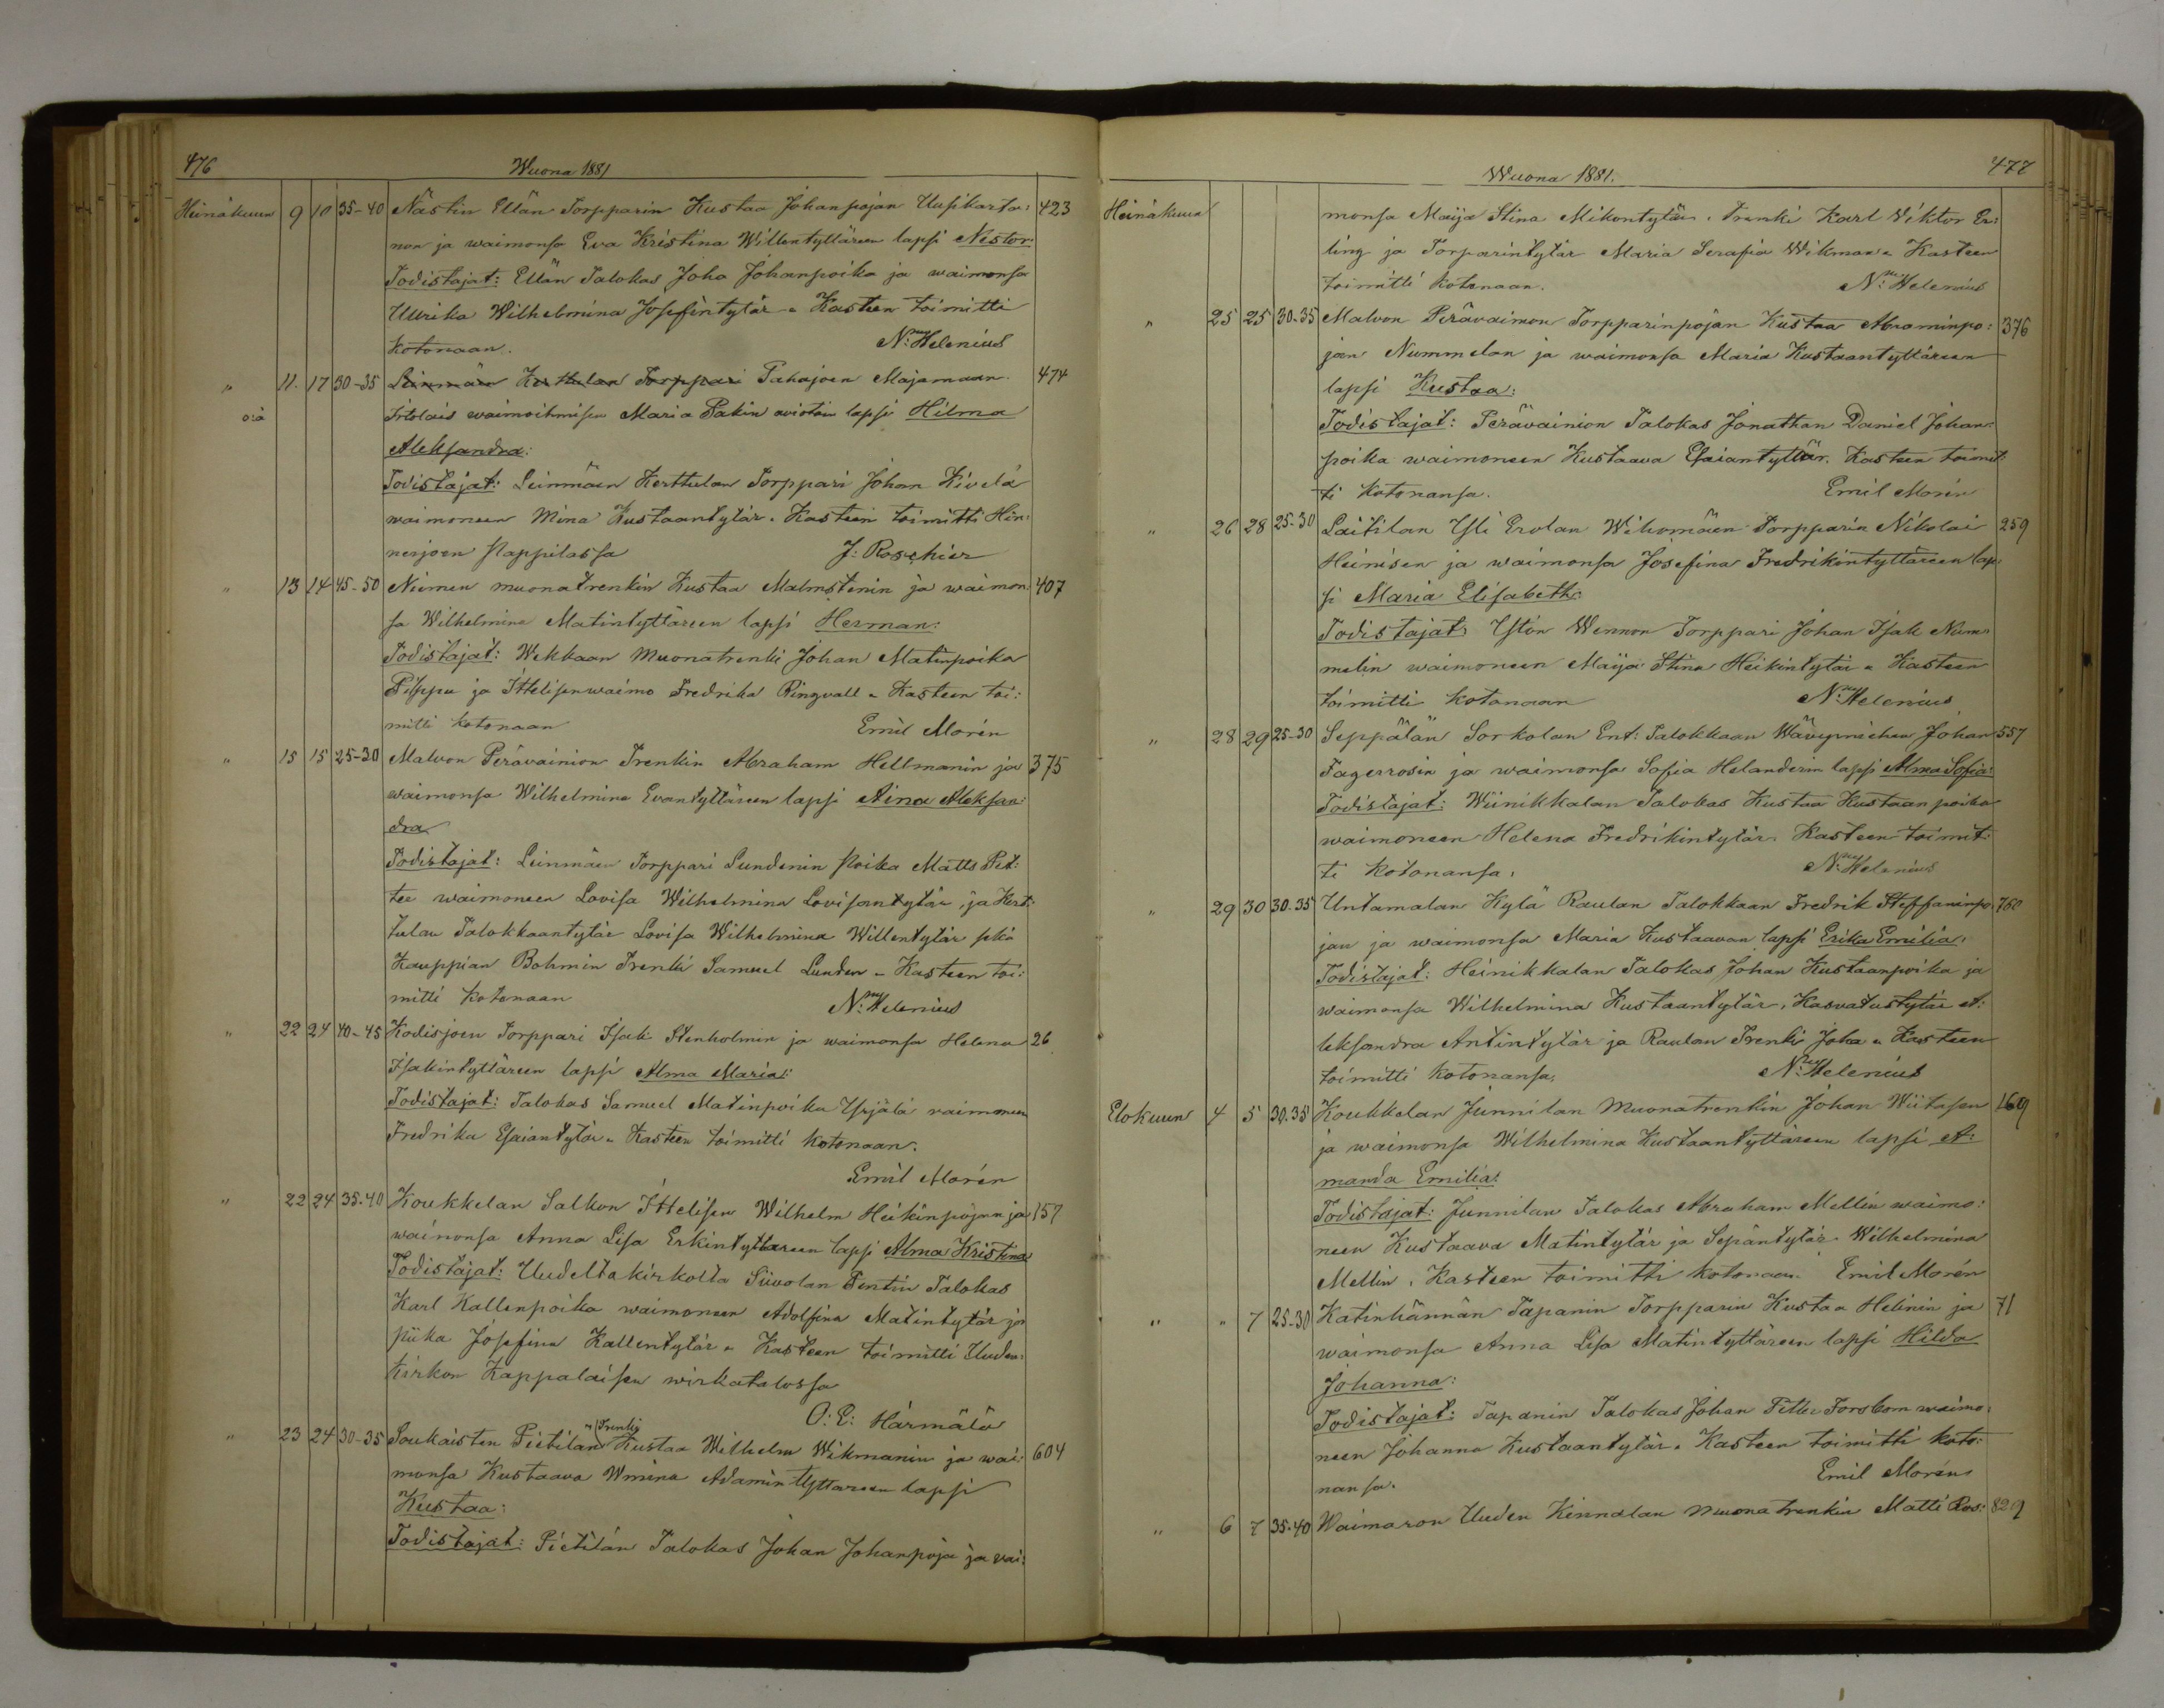 476
Wuona 1881
Heinäkuun 9 10 35-40 Nästin Ellän Torpparin Kustaa Johanpojan Uusikarta: 423
non ja waimonsa Eva Kristina Willentyttären lapsi Nestor:
Todistajat: Ellän Talokas Joha Johanpoika ja waimonsa
Ullrika Wilhelmina Josefintytär. Kasteen toimitti
kotonaan. N: Helenius
" 11. 17 30-35 Leinmäen Kerttulan Torppari Pahajoen Majamaan 474
o:ä Irtolais waimoihmisen Maria Pakin aviotoin lapsi Hilma
Aleksandra:
Todistajat: Leinmäen Kerttulan Torppari Johan Kivelä
waimoneen Mina Kustaantytär. Kasteen toimitti Hin:
nerjoen Pappilassa J: Roschier
" 13 14 45-50 Niemen muonatrenkin Kustaa Malmstenin ja waimon: 407
sa Wilhelmina Matintyttären lapsi Herman:
Todistajat: Wekkaan Muonatrenki Johan Matinpoika
Piippu ja Ittelisenwaimo Fredrika Ringvall. Kasteen toi:
mitti kotonaan Emil Morén
" 15 15 25-30 Malvon Perävainion Trenkin Abraham Hellmanin ja 375
waimonsa Wilhelmina Evantyttären lapsi Aina Aleksan:
dra
Todistajat: Leinmäen Torppari Lundenin Poika Matts Pet:
ter waimoneen Lovisa Wilhelmina Lovisantytär, ja Kert:
tulan Talokkaantytär Lovisa Wilhelmina Willentytär sekä
Kauppian Bohmin Trenki Samuel Lunden. Kasteen toi:
mitti kotonaan N: Helenius
" 22 24 40-45 Kodisjoen Torppari Isak Stenholmin ja waimonsa Helena 26
Isakintyttären lapsi Alma Maria:
Todistajat: Talokas Samuel Matinpoika Yrjälä waimoneen
Fredrika Esaiantytär. Kasteen toimitti kotonaan.
Emil Morén
" 22 24 35-40 Koukkelan Salkon Ittelisen Wilhelm Heikinpojan ja 157
waimonsa Anna Lisa Erkintyttären lapsi Alma Kristina
Todistajat: Uudeltakirkolta Siivolan Pentin Talokas
Karl Kallenpoika waimoneen Adolfina Matintytär ja
piika Josefina Kallentytär. Kasteen toimitti Uuden:
kirkon Kappalaisen wirkatalossa
O: E: Härmälä
" 23 24 30-35 Soukaisten Pietilän Trenkin Kustaa Wilhelm Wikmanin ja wai: 604
monsa Kustaava Wmina Adamintyttären lapsi
Kustaa:
Todistajat: Pietilän Talokas Johan Johanpoja ja wai:
Wuona 1881.
477
Heinäkuun monsa Maija Stina Mikontytär. Trenki Karl Viktor Er:
ling ja Torparintytär Maria Serafia Wikman. Kasteen
toimitti kotonaan. N: Helenius
" 25 25 30-35 Malvon Perävaimon Torpparinpojan Kustaa Abraminpo: 376
jan Nummelan ja waimonsa Maria Kustaantyttären
lapsi Kustaa:
Todistajat: Perävainion Talokas Jonathan Daniel Johan:
poika waimoneen Kustaava Esaiantyttär. Kasteen toimit:
ti kotonansa. Emil Morén
" 26 28 25-30 Laitilan Ysli Erolan Wihomäen Torpparin Nikolai 259
Heinisen ja waimonsa Josefina Fredrikintyttären lap:
si Maria Elisabeth:
Todistajat: Wennon Torppari Johan Isak Num:
melin waimoneen Maija Stina Heikintytär. Kasteen
toimitti kotonaan N: Helenius
" 28 29 25-30 Seppälän Sorkolan Ent: Talokkaan Wävymiehen Johan 557
Fagerrosin ja waimonsa Sofia Helanderin lapsi Alma Sofia:
Todistajat: Wiinikkalan Talokas Kustaa Kustaanpoika
waimoneen Helena Fredrikintytär. Kasteen toimit:
ti kotonansa. N: Helenius
" 29 30 30-35 Untamalan Kylä Raulan Talokkaan Fredrik Steffaninpo: 760
jan ja waimonsa Maria Kustaavan lapsi Erika Emilia:
Todistajat: Heinikkalan Talokas Johan Kustaanpoika ja
waimonsa Wilhelmina Kustaantytär, Kasvatustytär A:
leksandra Antintytär ja Raulan Trenki Joha. Kasteen
toimitti kotonansa, N: Helenius
Elokuun 4 5 30-35 Koukkelan Junnilan Muonatrenkin Johan Wiitasen 169
ja waimonsa Wilhelmina Kustaantyttären lapsi A:
manda Emilia:
Todistajat: Junnilan Talokas Abraham Mellin waimo:
neen Kustaava Matintytär ja Sepäntytär Wilhelmina
Mellin. Kasteen toimitti kotonaan. Emil Morén
" " 7 25-30 Katinhännän Tapanin Torpparin Kustaa Helinin ja 71
waimonsa Anna Lisa Matintyttären lapsi Hilda
Johanna:
Todistajat: Tapanin Talokas Johan Petter Forsbom waimo:
neen Johanna Kustaantytär. Kasteen toimitti koto:
nansa. Emil Morén
" 6 7 35-40 Waimaron Uuden Kinnalan muonatrenkin Matti Ros: 829